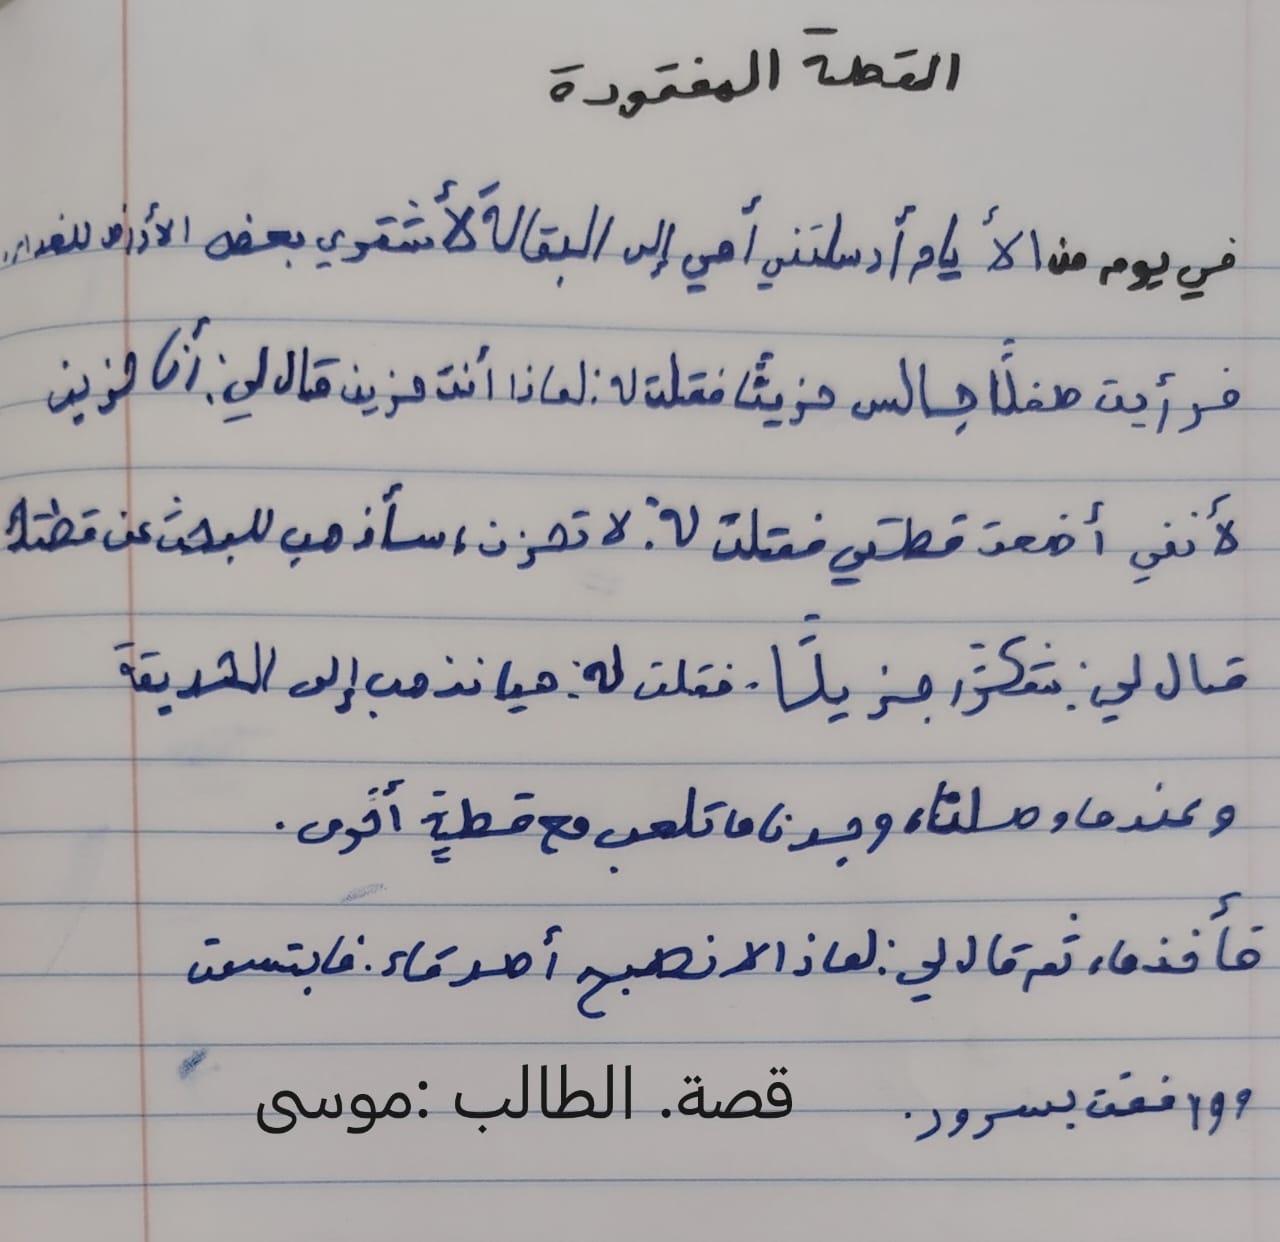 القطة المفقودة
في يوم من الأيام أرسلتني أمي إلى البقالة لأشتري بعض الأرز للغداء.
فرأيت طفلًا جالس حزينًا فقلت له: لماذا أنت حزين قال لي: أنا حزين
لأنني أضعت قطتي فقلت له: لا تحزن، سأذهب للبحث عن قطتك
قال لي: شكرًا جزيلًا. فقلت له: هيا نذهب إلى الحديقة
وعندما وصلنا، وجدناها تلعب مع قطةٍ أخرى.
فأخذها، ثم قال لي: لماذا لا نصبح أصدقاء. فابتسمت
ووافقت بسرور.
قصة. الطالب :موسى